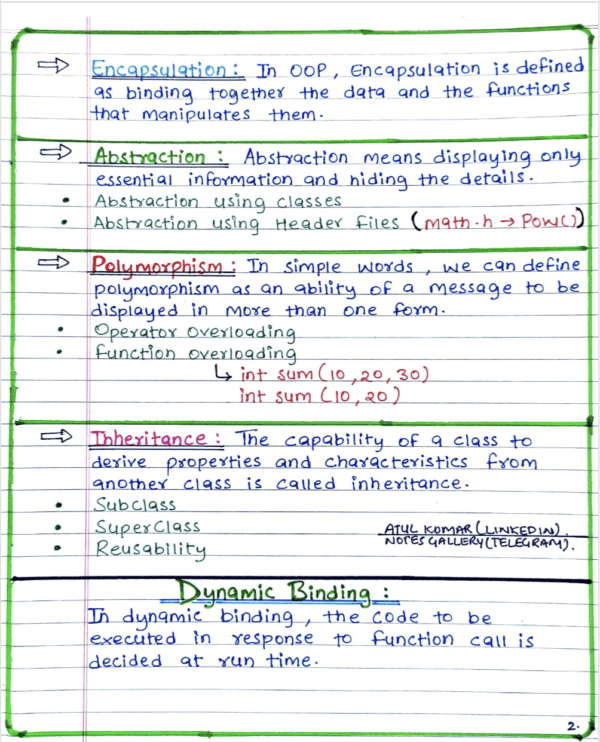 ⇨ Encapsulation : In OOP, Encapsulation is defined
as binding together the data and the functions
that manipulates them.
⇨ Abstraction : Abstraction means displaying only
essential information and hiding the details.
• Abstraction using classes
• Abstraction using Header files (math.h → Pow())
⇨ Polymorphism : In simple words, we can define
polymorphism as an ability of a message to be
displayed in more than one form.
• Operator overloading
• Function overloading
↳ int sum (10, 20, 30)
int sum (10, 20)
⇨ Inheritance : The capability of a class to
derive properties and characteristics from
another class is called inheritance.
• Subclass
• SuperClass
• Reusability
ATUL KUMAR (LINKEDIN).
NOTES GALLERY (TELEGRAM).
Dynamic Binding :
In dynamic binding, the code to be
executed in response to function call is
decided at run time.
2.